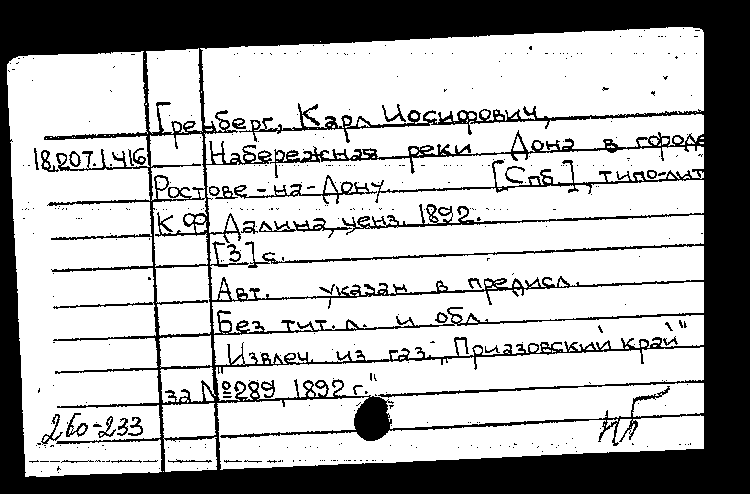 Гренберг, Карл Иосифович,
18.207.1.416 Набережная реки Дона в городе
Ростове-на-Дону [Спб.], типо-лит
К.Ф Далина, ценз. 1892.
[3] с.
Авт. указан в предисл.
Без тит. л. и обл.
"Извлеч. из газ. „Приазовский край"
за №289, 1892 г."
260-233